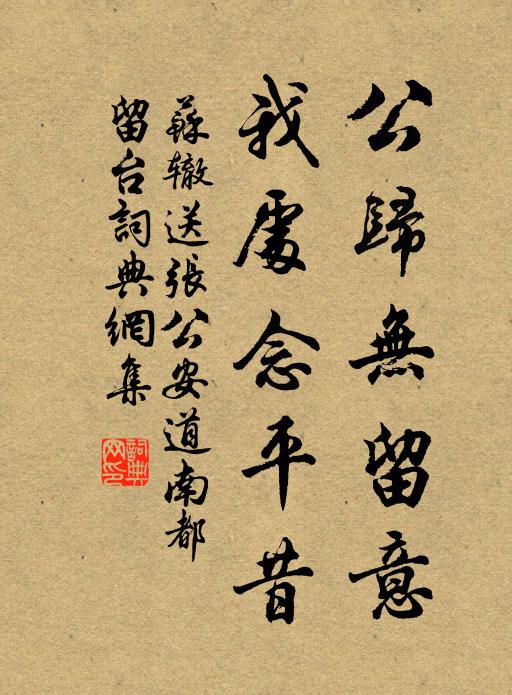 公歸無留意
我處念平昔
蘇辙送張公安道南都
留台詞典網集
詞典
网印